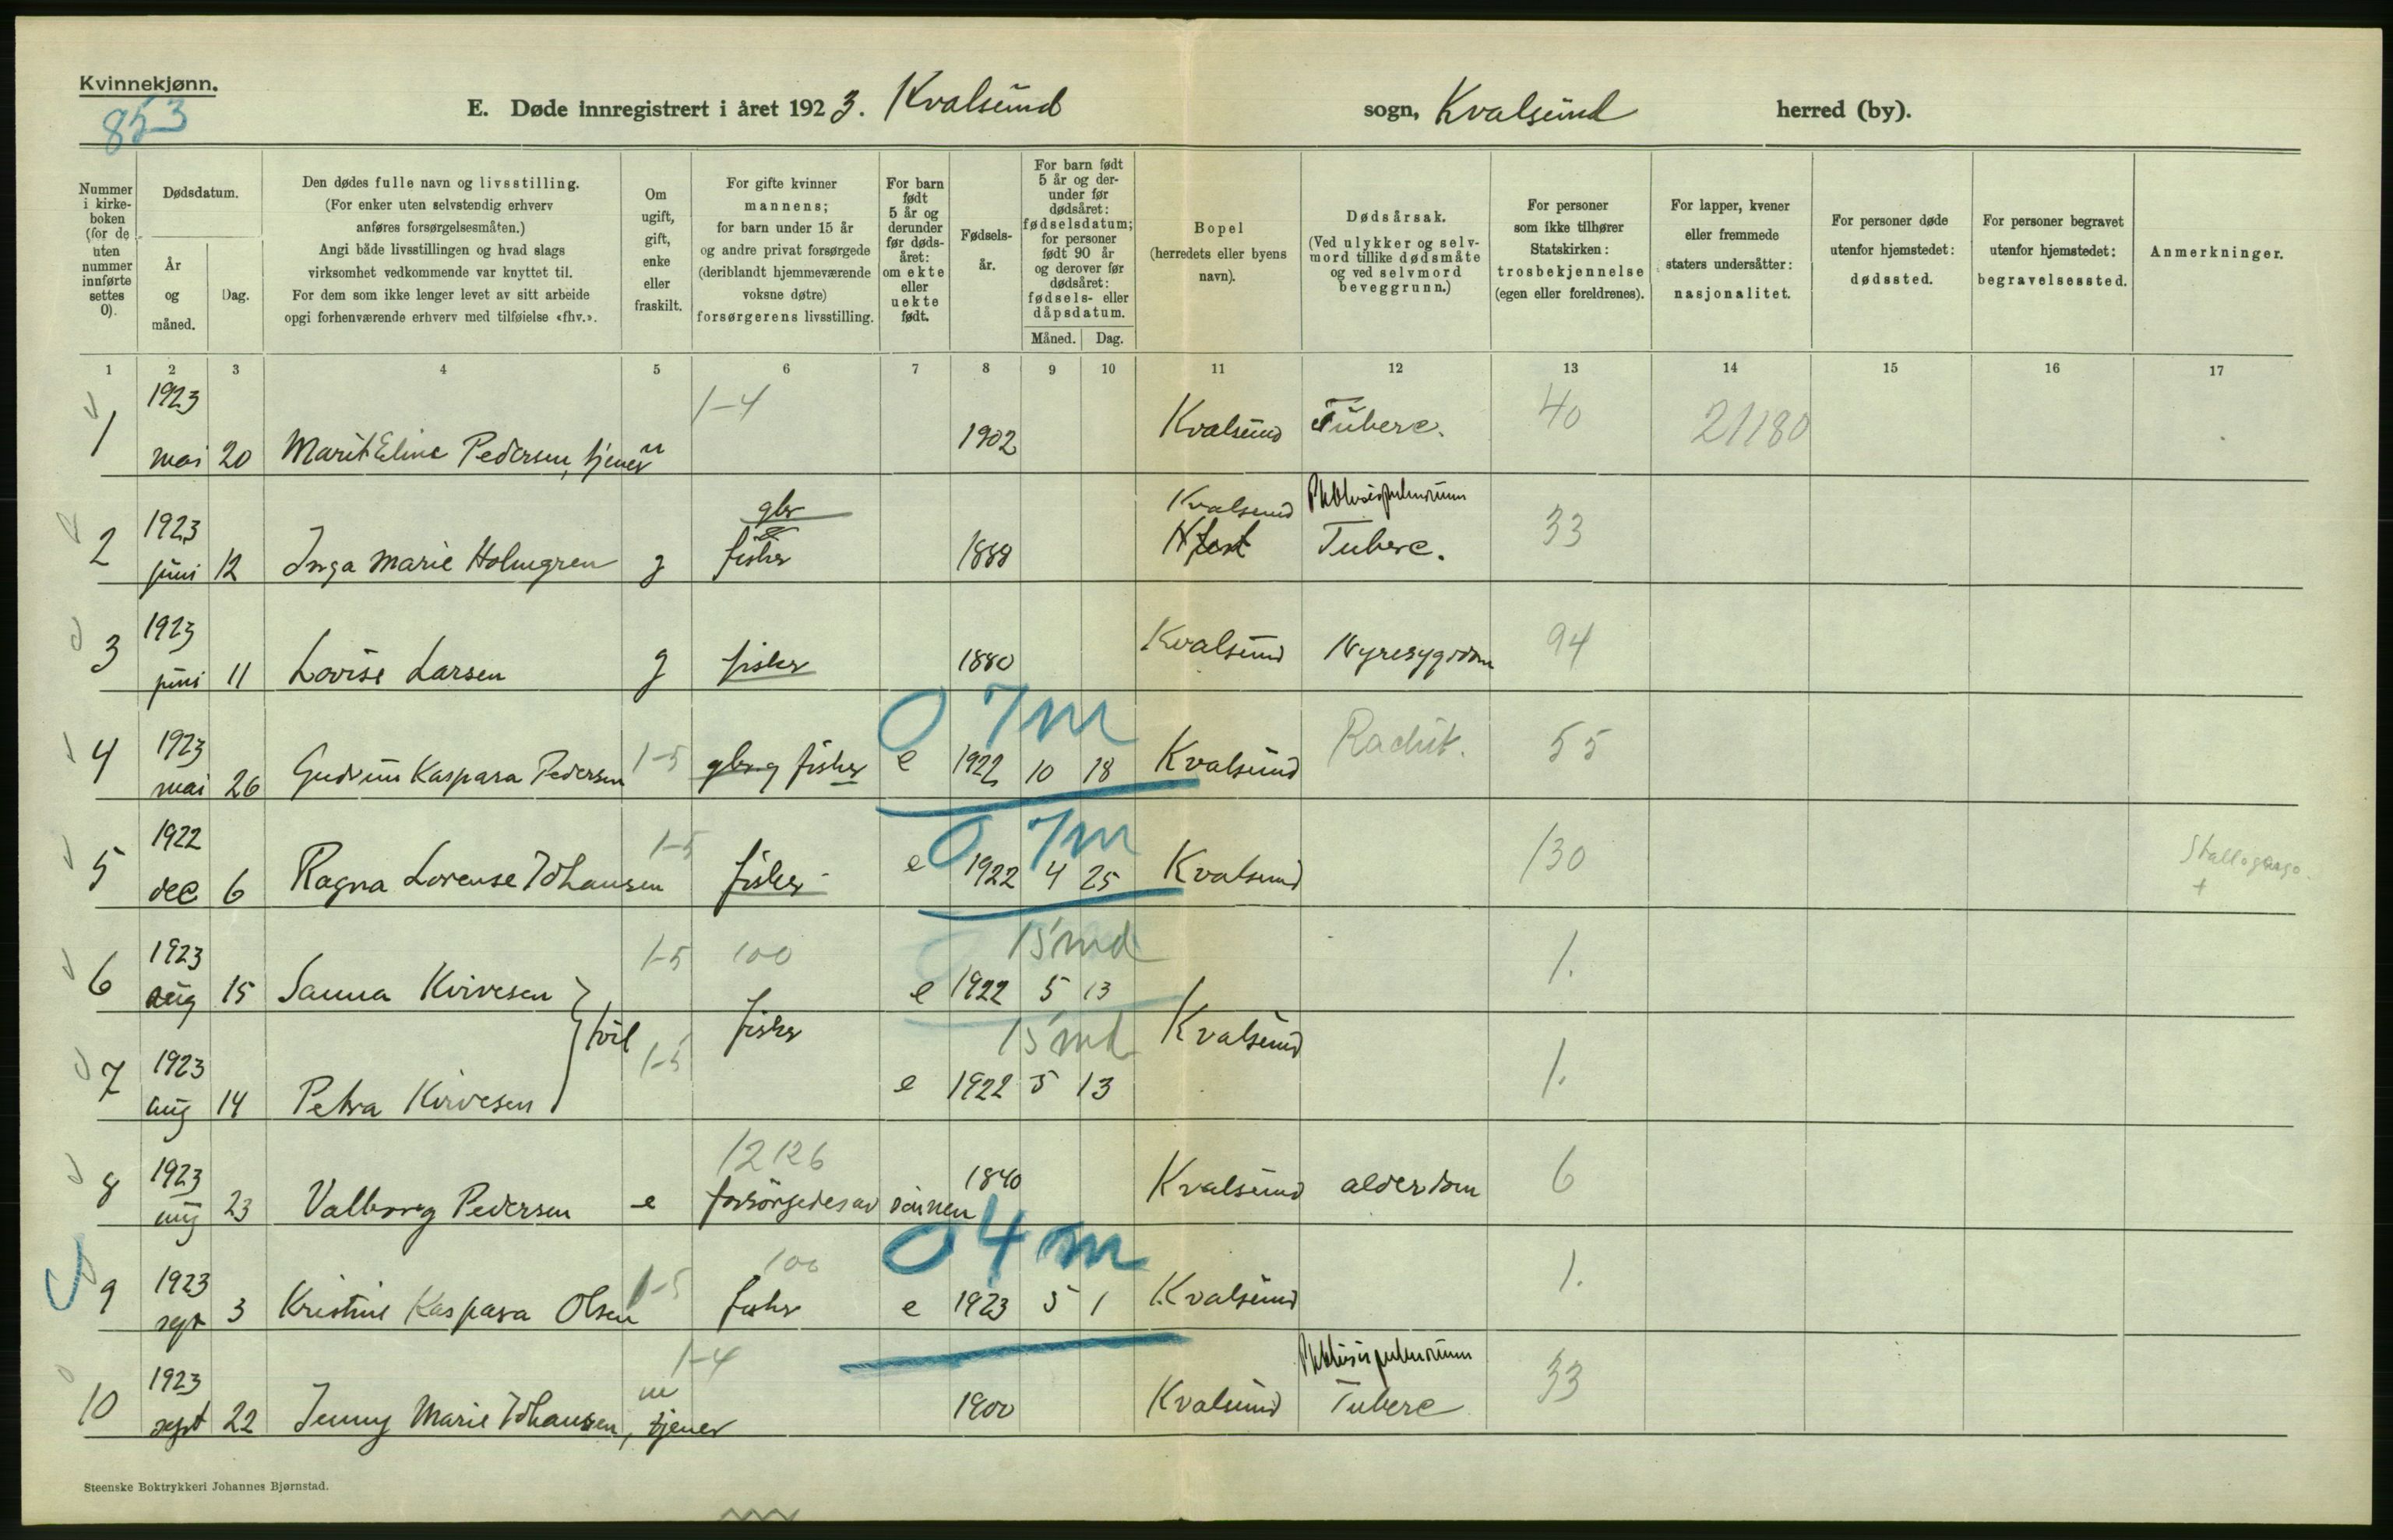 Kvinnekjønn.
853
E. Døde innregistrert i året 1923. Kvalsund sogn, Kvalsund herred (by).
Nummer i kirkeboken (for de uten nummer innførte settes 0).
Dødsdatum.
År og måned.
Dag.
Den dødes fulle navn og livsstilling.
(For enker uten selvstendig erhverv
anføres forsørgelsesmåten.)
Angi både livsstillingen og hvad slags
virksomhet vedkommende var knyttet til.
For dem som ikke lenger levet av sitt arbeide
opgi forhenværende erhverv med tilføielse «fhv.».
Om ugift, gift, enke eller fraskilt.
For gifte kvinner
mannens;
for barn under 15 år
og andre privat forsørgede
(deriblandt hjemmeværende
voksne døtre)
forsørgerens livsstilling.
For barn født 5 år og derunder før dødsåret: om ekte eller uekte født.
Fødselsår.
For barn født
5 år og derunder før
dødsåret:
fødselsdatum;
for personer
født 90 år
og derover før
dødsåret:
fødsels- eller
dåpsdatum.
Måned. Dag.
Bopel
(herredets eller byens
navn).
Dødsårsak.
(Ved ulykker og selvmord tillike dødsmåte
og ved selvmord
beveggrunn.)
For personer
som ikke tilhører
Statskirken:
trosbekjennelse
(egen eller foreldrenes).
For lapper, kvener
eller fremmede
staters undersåtter:
nasjonalitet.
For personer døde
utenfor hjemstedet:
dødssted.
For personer begravet
utenfor hjemstedet:
begravelsessted.
Anmerkninger.
1 2 3 4 5 6 7 8 9 10 11 12 13 14 15 16 17
1 1923 mai 20 Marit Eline Pedersen, tjener u 1-4 1902 Kvalsund Tuberc. 40 21180
2 1923 juni 12 Inga Marie Holmgren g gbr fisker 1888 Kvalsund Hfest Phthisis pulmonum Tuberc. 33
3 1923 juni 11 Lovise Larsen g fisker 1880 Kvalsund Nyresygdom 94
0 7m
4 1923 mai 26 Gudrun Kaspara Pedersen 1-5 gbr og fisker e 1922 10 18 Kvalsund Rachit. 55
0 7m
5 1922 dec 6 Ragna Lorense Johansen 1-5 fisker e 1922 4 25 Kvalsund 130
6 1923 aug 15 Sanna Kivivesen 1-5 100 15 md e 1922 5 13 1.
tvil fisker Kvalsund
7 1923 aug 14 Petra Kirvesen 1-5 15 md e 1922 5 13 1.
8 1923 aug 23 Valborg Pedersen e 12126 forsörgedes av sönnen 1840 Kvalsund alderdom 6
0 4 m
9 1923 sept 3 Kristine Kaspara Olsen 1-5 100 fisker e 1923 5 1 Kvalsund 1.
10 1923 sept 22 Jenny Marie Johansen, tjener 1-4 1900 Kvalsund Phthisis pulmonum Tuberc 33
Steenske Boktrykkeri Johannes Bjørnstad.